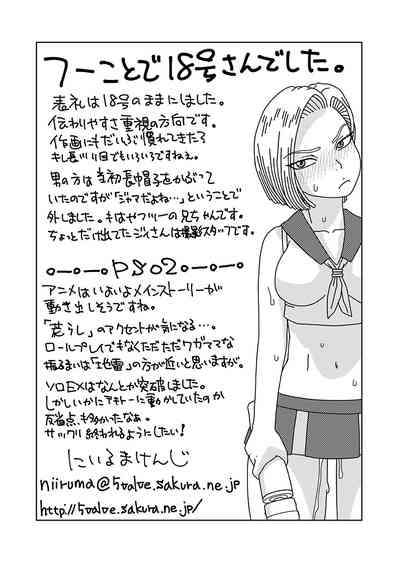 フーことで18号さんでした。
表札は18号のままにしました。
伝わりやすさ重視の方向です。
作画にもだいぶ慣れてきたら
男の方は最初長帽子をかぶって
いたのですが「ジャマだよね…」ということで
外しました。もはやフツーの兄ちゃんです。
ちょっとだけ出てたジイさんは撮影スタッフです。
PSO2
アニメはいよいよメインストーリーが
動き出しそうですね。
「荒らし」のアクセントが気になる…。
ロールプレイでもなくただただワガママな
振るまいは「地雷」の方が近いと思いますが。
ソロEXはなんとか突破しました。
しかしいかにアキトーに動かしていたのか
反省点も多かったなぁ。
サックリ終われるようにしたい!
にいるまけんじ
niiruma@5valve.sakura.ne.jp
http://5valve.sakura.ne.jp/